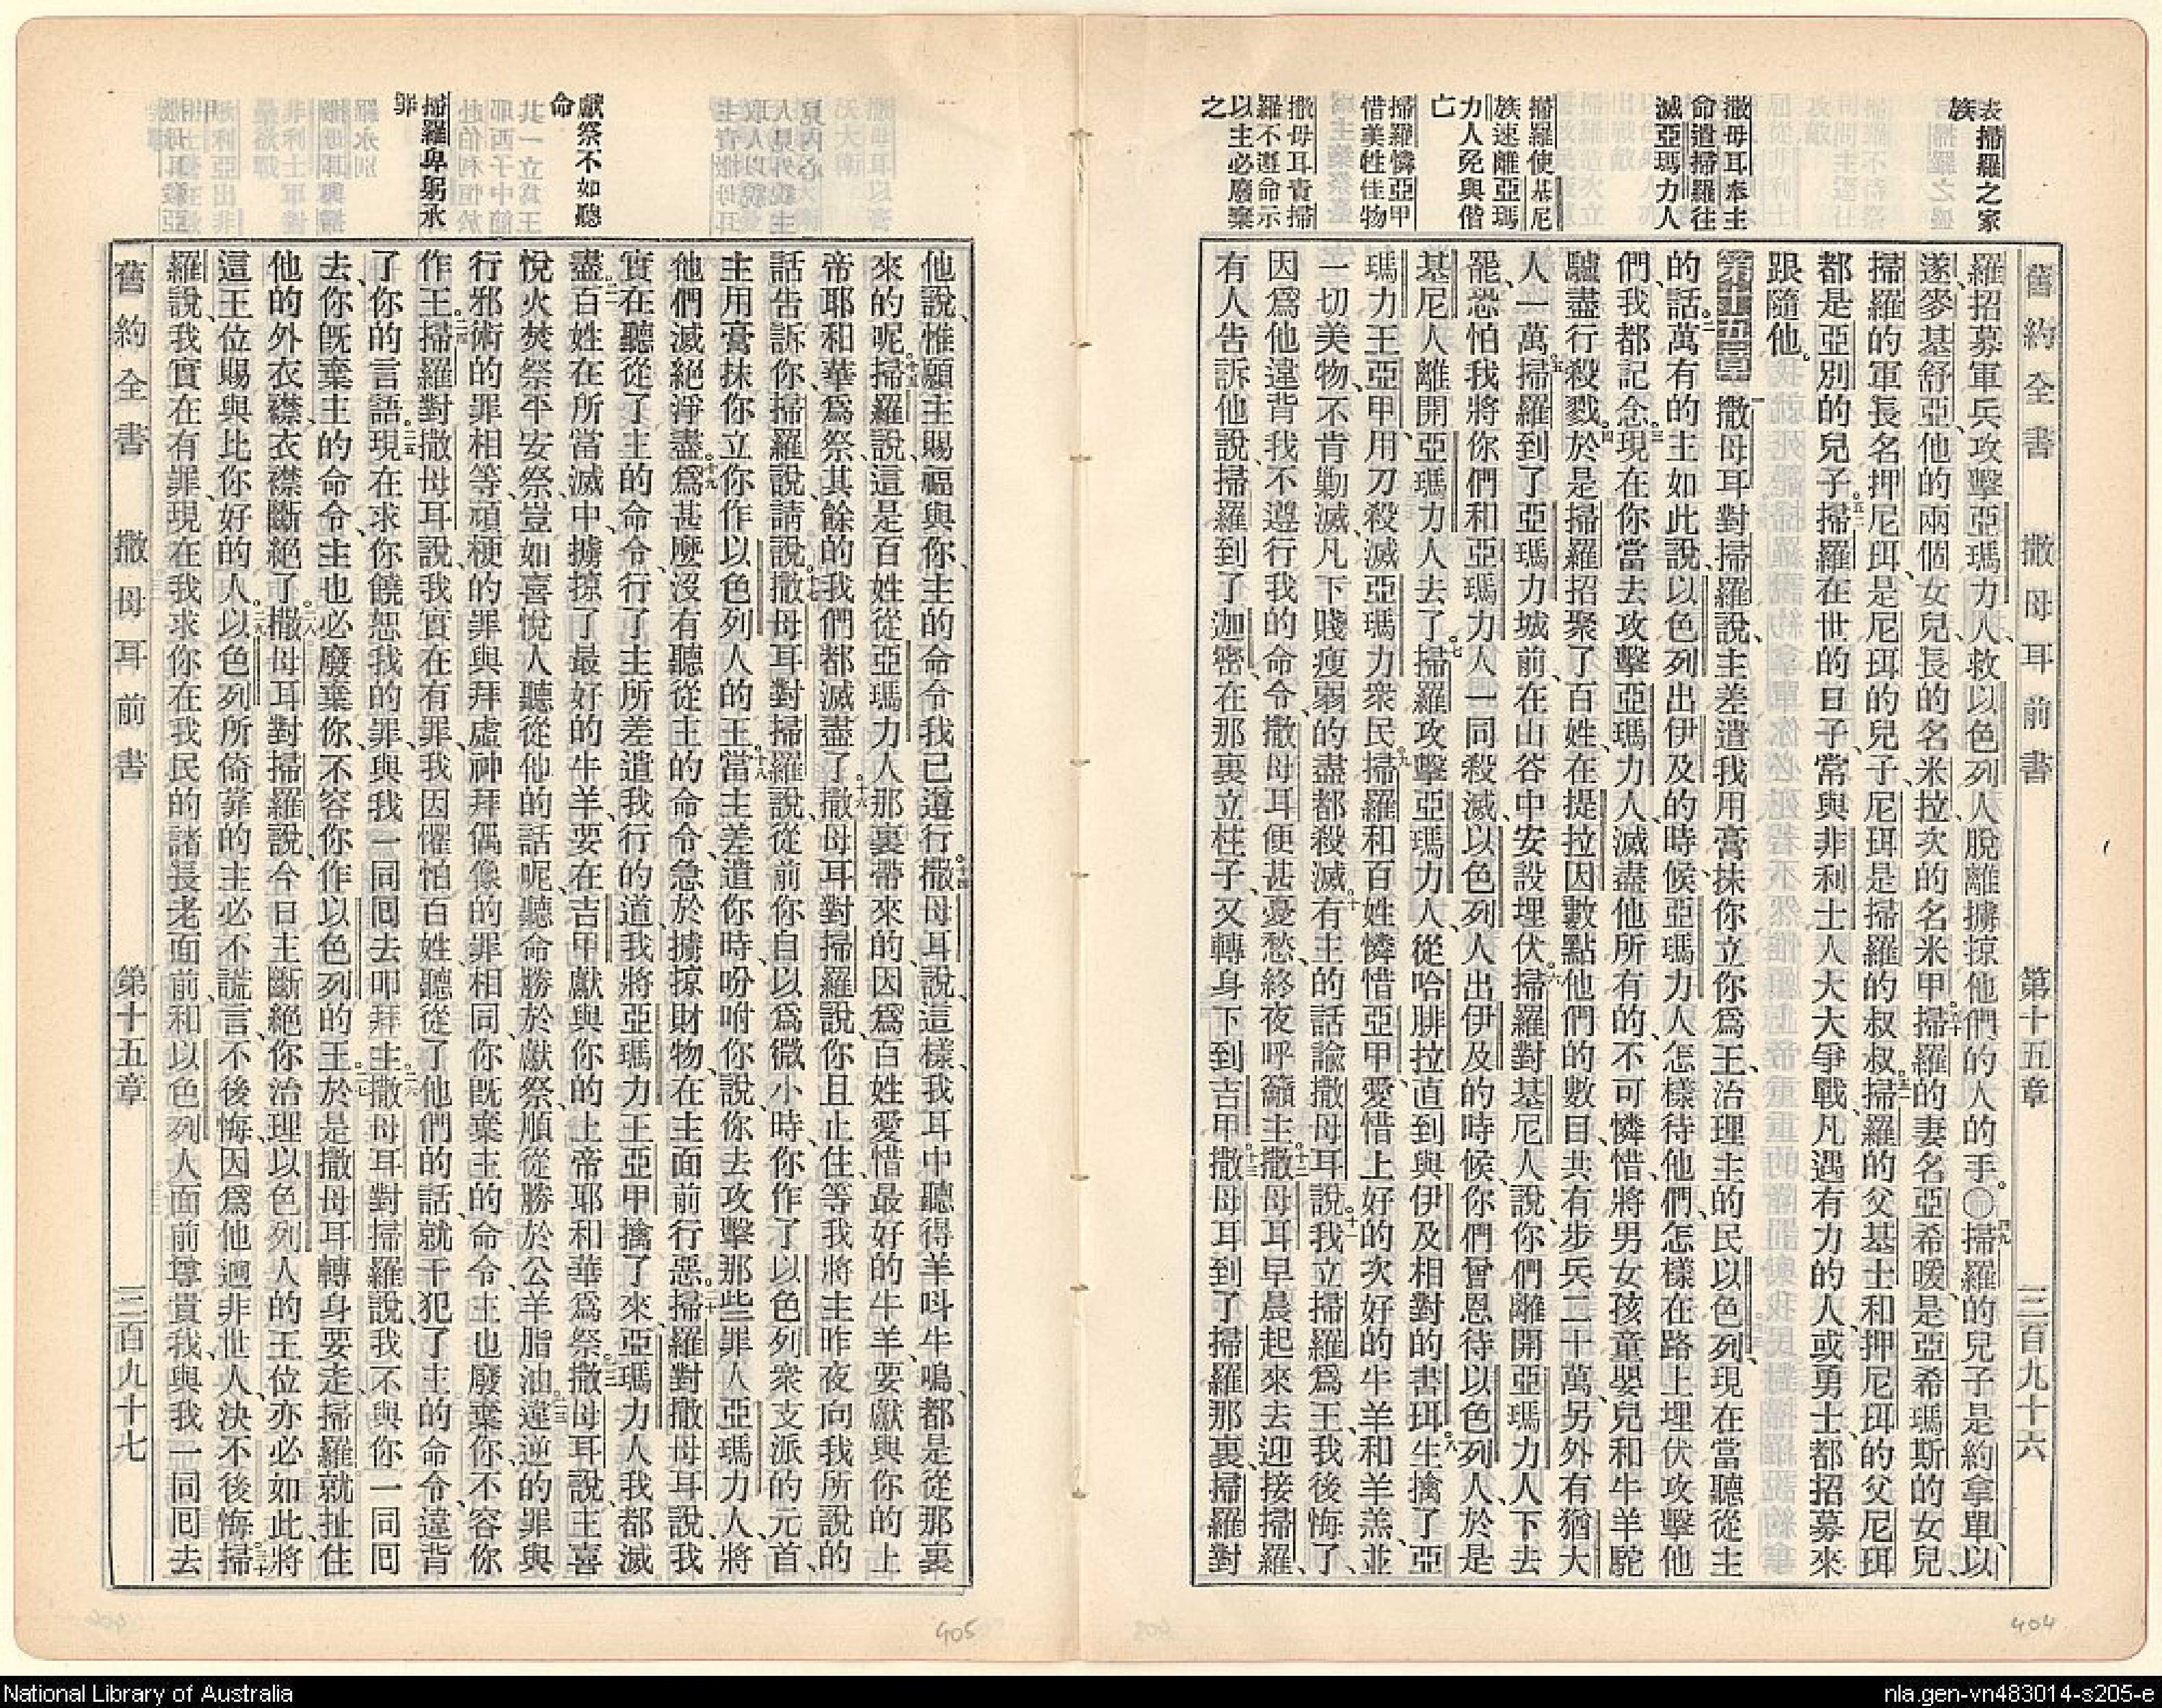 舊約全書 撒母耳前書 第十五章 三百九十六
表掃羅之家
族
撒母耳奉主
命遣掃羅往
滅亞瑪力人
掃羅使基尼
族速離亞瑪
力人免與偕
亡
掃羅憐亞甲
惜美牲佳物
撒母耳責掃
羅不遵命示
以主必廢棄
之
羅招募軍兵攻擊亞瑪力人、救以色列人脫離擄掠他們的人的手。〇四九掃羅的兒子是約拿單、以
遂、麥基舒亞、他的兩個女兒、長的名米拉、次的名米甲。五十掃羅的妻名亞希暖、是亞希瑪斯的女兒、
掃羅的軍長名押尼珥、是尼珥的兒子、尼珥是掃羅的叔叔。五一掃羅的父基士、和押尼珥的父尼珥
都是亞別的兒子。五二掃羅在世的日子、常與非利士人大大爭戰、凡遇有力的人、或勇士、都招募來
跟隨他。
第十五章 一撒母耳對掃羅說、主差遣我用膏抹你、立你爲王、治理主的民以色列、現在當聽從主
的話。二萬有的主如此說、以色列出伊及的時候、亞瑪力人怎樣待他們、怎樣在路上埋伏攻擊他
們、我都記念。三現在你當去攻擊亞瑪力人、滅盡他所有的、不可憐惜、將男女孩童嬰兒和牛羊駝
驢盡行殺戮。四於是掃羅招聚了百姓、在提拉因數點他們的數目、共有步兵二十萬、另外有猶大
人一萬。五掃羅到了亞瑪力城前、在山谷中安設埋伏。六掃羅對基尼人說、你們離開亞瑪力人下去
罷、恐怕我將你們和亞瑪力人一同殺滅、以色列人出伊及的時候、你們曾恩待以色列人、於是
基尼人離開亞瑪力人去了。七掃羅攻擊亞瑪力人、從哈腓拉直到與伊及相對的書珥。八生擒了亞
瑪力王亞甲、用刀殺滅亞瑪力衆民。九掃羅和百姓憐惜亞甲、愛惜上好的次好的牛羊和羊羔、並
一切美物、不肯勦滅、凡下賤瘦弱的盡都殺滅。十有主的話論撒母耳說、十一我立掃羅爲王、我後悔了、
因爲他違背我、不遵行我的命令、撒母耳便甚憂愁、終夜呼籲主。十二撒母耳早晨起來去迎接掃羅、
有人告訴他說、掃羅到了迦密、在那裏立柱子、又轉身下到吉甲。十三撒母耳到了掃羅那裏、掃羅對
舊約全書 撒母耳前書 第十五章 三百九十七
獻祭不如聽
命
掃羅卑躬承
罪
他說、惟願主賜福與你、主的命令我已遵行。十四撒母耳說、這樣、我耳中聽得羊呌牛鳴、都是從那裏
來的呢。十五掃羅說、這是百姓從亞瑪力人那裏帶來的、因爲百姓愛惜最好的牛羊、要獻與你的上
帝耶和華爲祭、其餘的我們都滅盡了。十六撒母耳對掃羅說、你且止住、等我將主昨夜向我所說的
話告訴你、掃羅說、請說。十七撒母耳對掃羅說、從前你自以爲微小時、你作了以色列衆支派的元首、
主用膏抹你、立你作以色列人的王。十八當主差遣你時、吩咐你說、你去攻擊那些罪人亞瑪力人、將
他們滅絕淨盡。十九爲甚麼沒有聽從主的命令、急於擄掠財物、在主面前行惡。二十掃羅對撒母耳說、我
實在聽從了主的命令、行了主所差遣我行的道、我將亞瑪力王亞甲擒了來、亞瑪力人我都滅
盡。二一百姓在所當滅中、擄掠了最好的牛羊、要在吉甲獻與你的上帝耶和華爲祭。二二撒母耳說、主喜
悅火焚祭平安祭、豈如喜悅人聽從他的話呢、聽命勝於獻祭、順從勝於公羊脂油。二三違逆的罪與
行邪術的罪相等、頑梗的罪與拜虛神拜偶像的罪相同、你旣棄主的命令、主也廢棄你、不容你
作王。二四掃羅對撒母耳說、我實在有罪、我因懼怕百姓、聽從了他們的話、就干犯了主的命令、違背
了你的言語。二五現在求你饒恕我的罪、與我一同囘去叩拜主。二六撒母耳對掃羅說、我不與你一同囘
去、你旣棄主的命令、主也必廢棄你、不容你作以色列的王。二七於是撒母耳轉身要走、掃羅就扯住
他的外衣襟、衣襟斷絕了。二八撒母耳對掃羅說、今日主斷絕你治理以色列人的王位、亦必如此、將
這王位賜與比你好的人。二九以色列所倚靠的主必不謊言、不後悔、因爲他迥非世人、決不後悔。三十掃
羅說、我實在有罪、現在我求你在我民的諸長老面前、和以色列人面前尊貴我、與我一同囘去
404
405
National Library of Australia
nla.gen-vn483014-s205-e